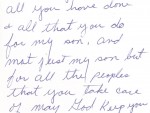 all you have done
& all that you do
for my son, and
not just my son but
for all the peoples
that you take care
of may God Keep you